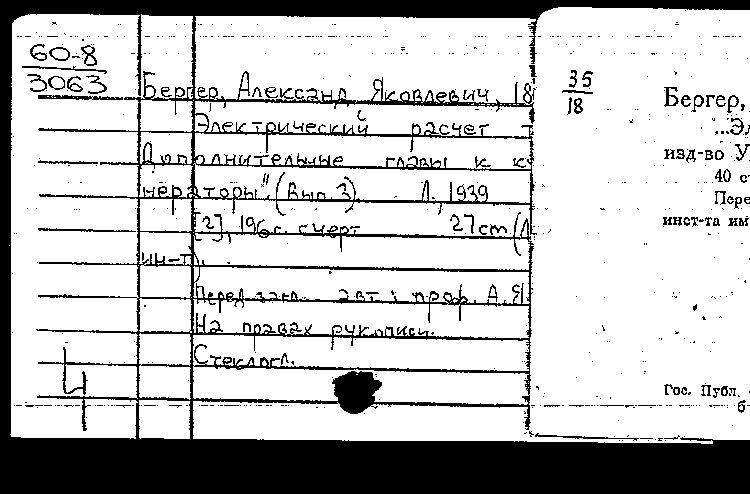 60-8
3063
Бергер, Александ Яковлевич, 18
Электрический расчет т
Дополнительные главы к к
нераторы". (Вып. 3). Л., 1939
[2], 196 с. с черт 27 cm (Л
ин-т).
Перед загл. авт: проф. А.Я.
На правах рукописи.
Стеклогр.
4
35
18
Бергер,
...Эл
изд-во У
40 ст
Пере
инст-та им
Гос. Публ.
б